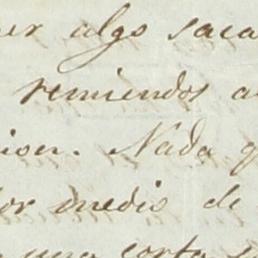 er algo saca
remiendos a
ion. Nada q
or medio de
una corta